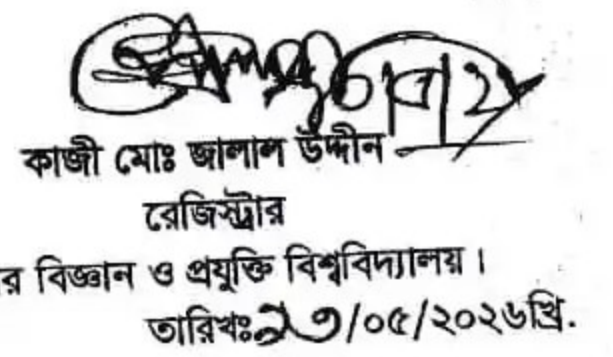 কাজী মোঃ জালাল উদ্দীন
রেজিস্ট্রার
র বিজ্ঞান ও প্রযুক্তি বিশ্ববিদ্যালয়।
তারিখঃ২৩/০৫/২০২৬খ্রি.